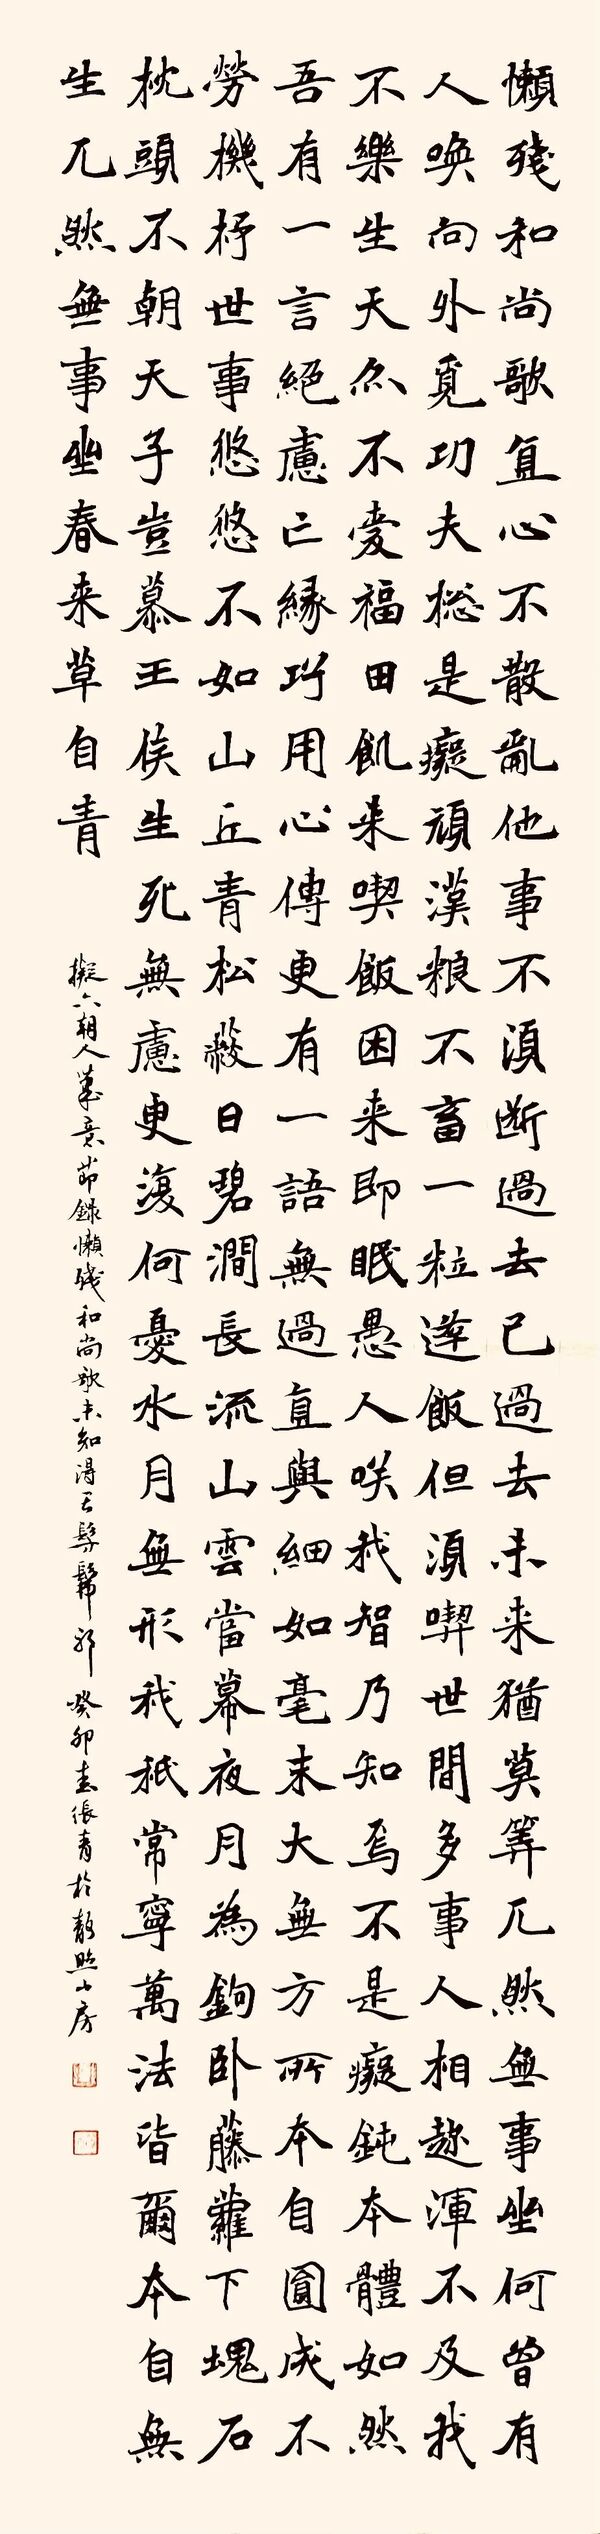 懶殘和尚歌直心不散亂他事不須斷過去已過去未来猶莫筭兀然無事坐何曾有
人喚向外覓功夫捴是癡頑漢粮不畜一粒逢飯但須喫世間多事人相趂渾不及我
不樂生天亦不愛福田飢来喫飯困来即眠愚人咲我智乃知焉不是癡鈍本體如然
吾有一言絕慮亡緣巧用心傳更有一語無過直與細如毫末大無方所本自圓成不
勞機杼世事悠悠不如山丘青松蔽日碧澗長流山雲當幕夜月為鉤卧藤蘿下塊石
枕頭不朝天子豈慕王侯生死無慮更復何憂水月無形我秖常寧萬法皆爾本自無
生兀然無事坐春来草自青
擬六朝人筆意節錄懶殘和尚歌未知得其髣髴耶 癸卯春張青於静照山房